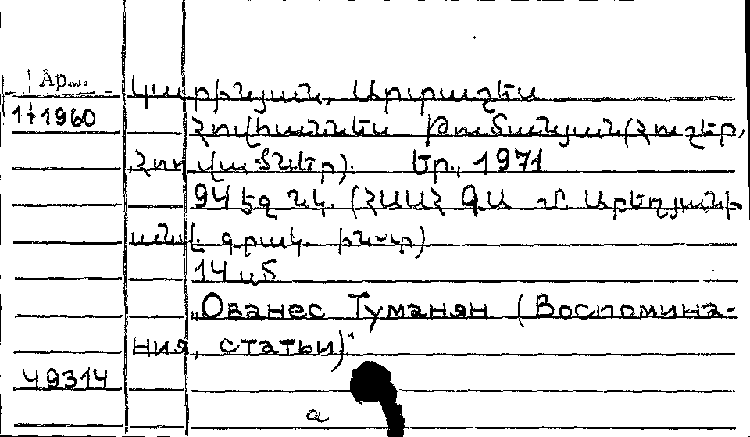 Ар.
Կարինյան, Արտաշես
1960
Հովհաննես Թումանյան (Հուշեր,
Հոդվածներ). Եր., 1971
94 էջ նկ. (ՀՍՍՀ ԳԱ Մ. Աբեղյանի
անվ. գրակ. ինստ)
14
"Ованес Туманян (Воспомина-
ния, статьи)"
49314
а